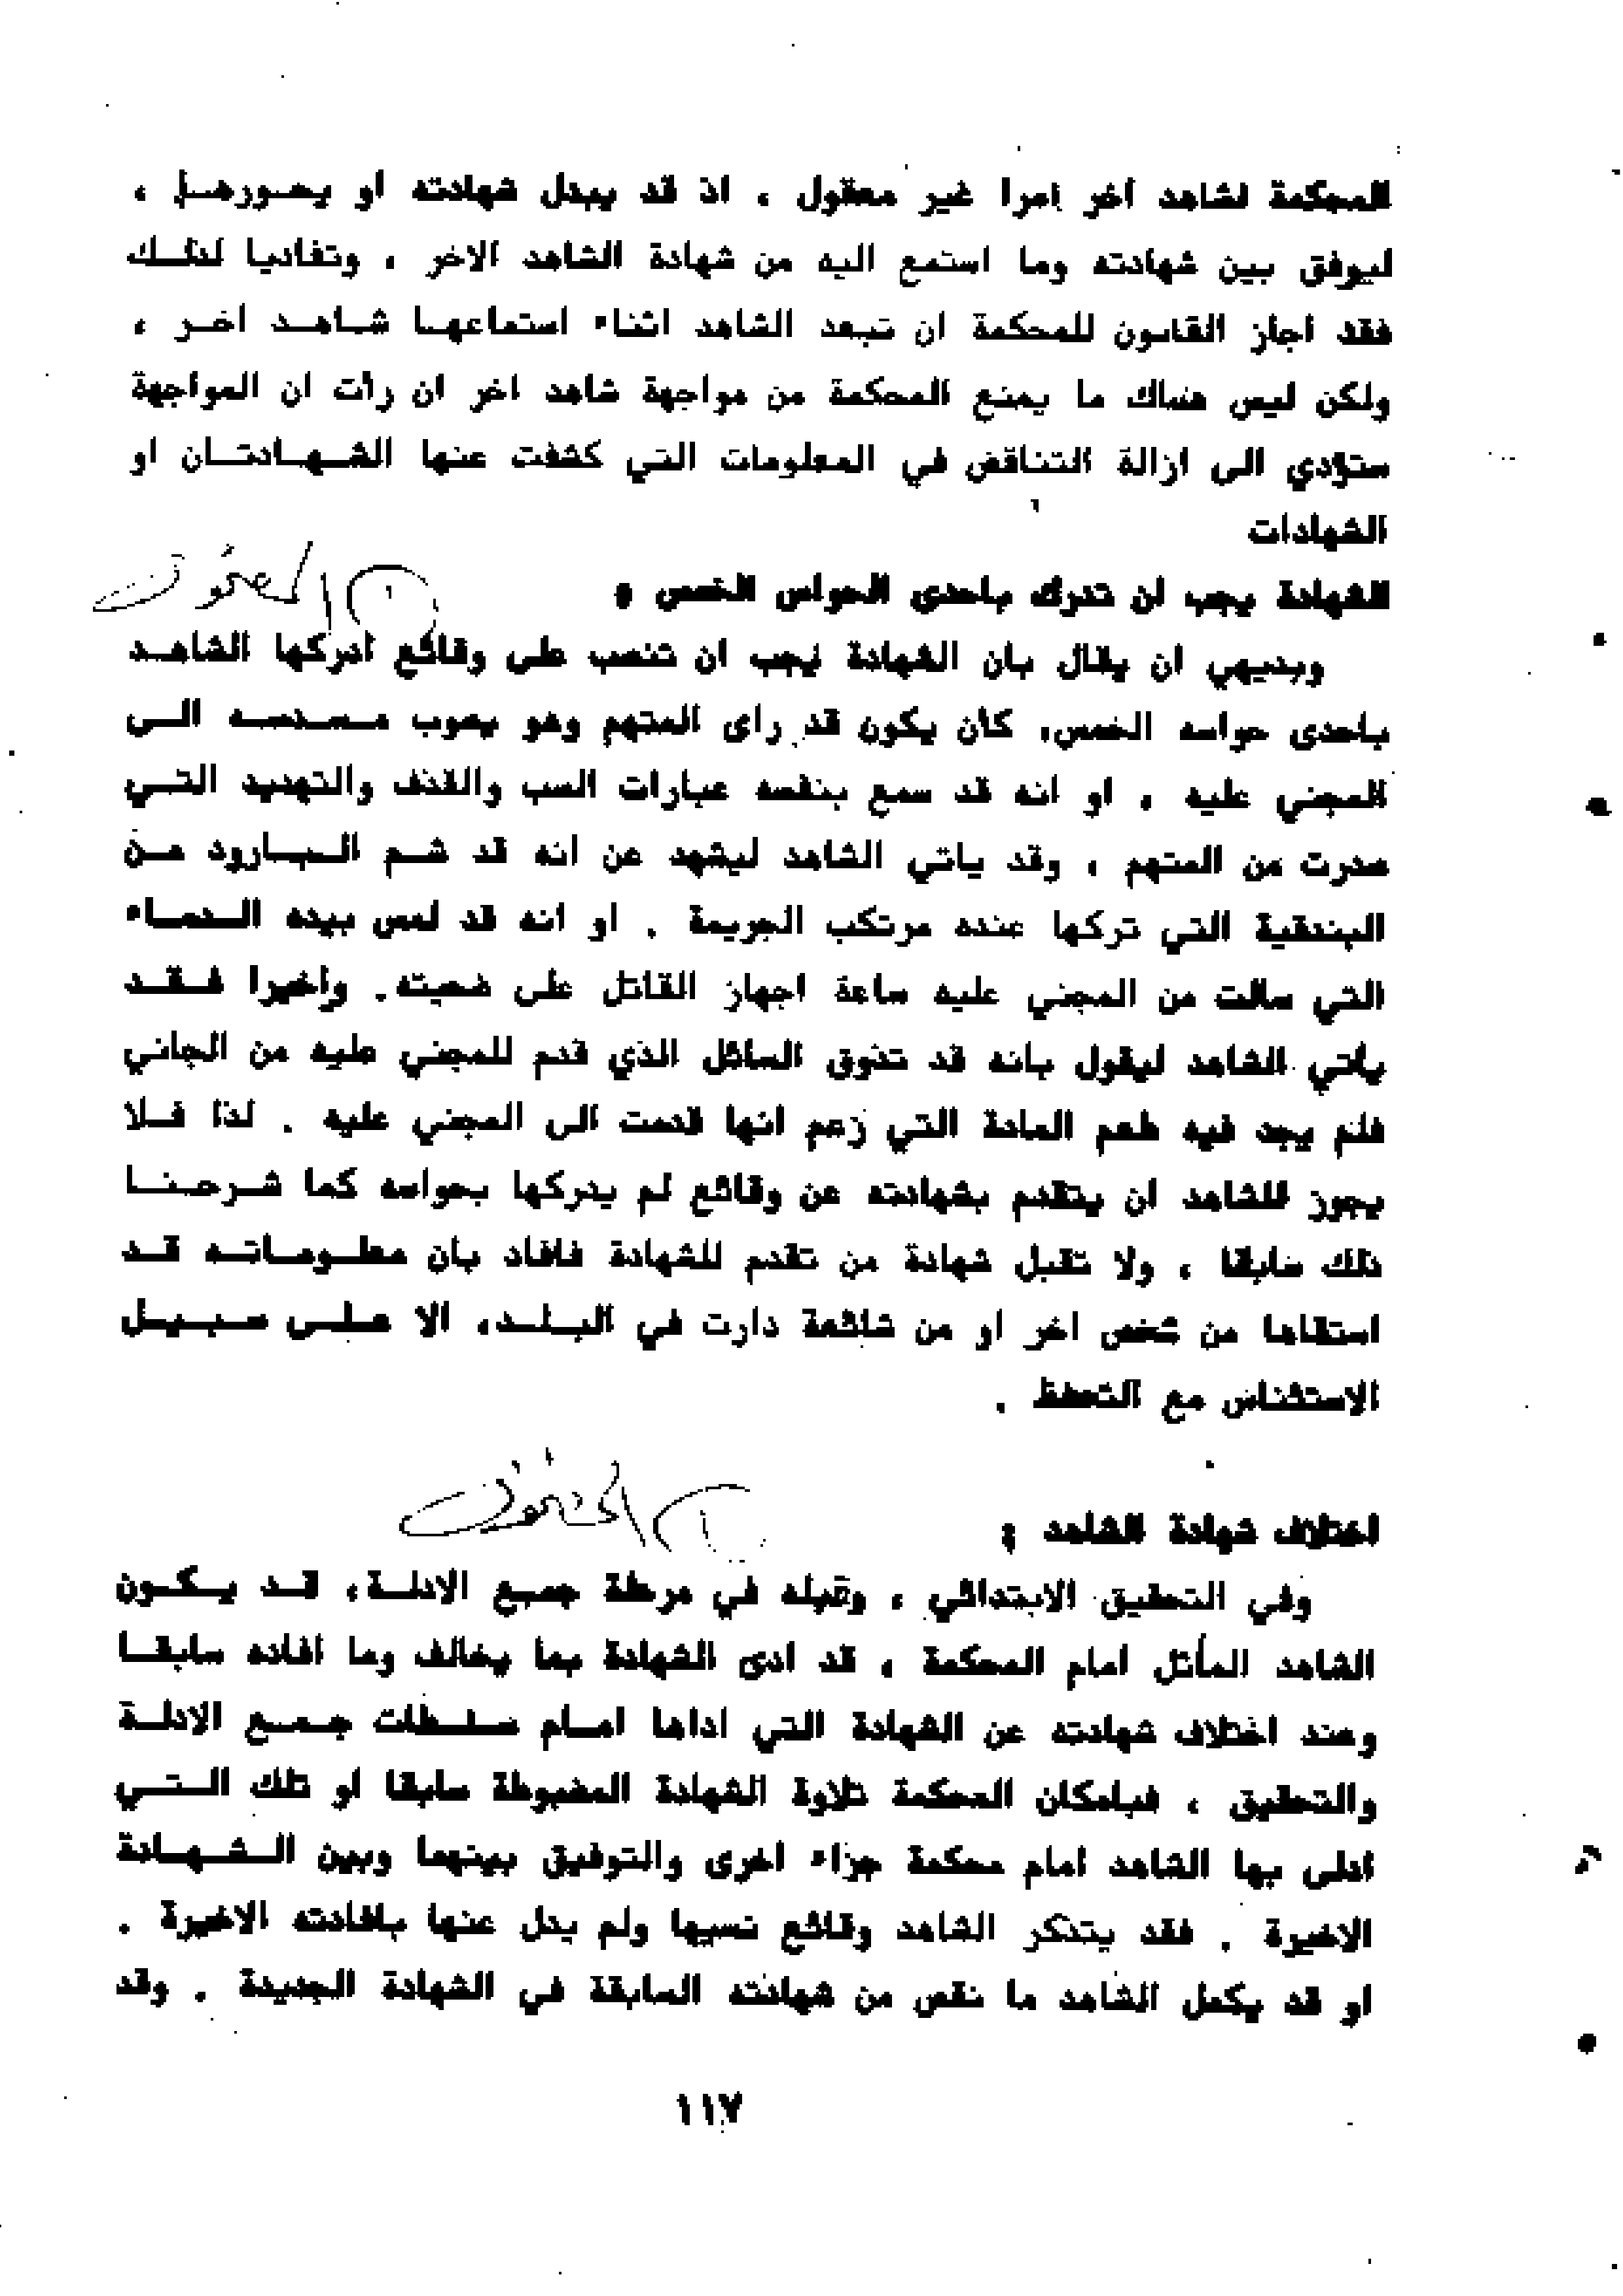 المحكمة لشاهد آخر امرا غير معقول ، اذ قد يبدل شهادته او يصورهـا ،
ليوفق بين شهادته وما استمع اليه من شهادة الشاهد الاخر ، وتفاديا لذلـك
فقد اجاز القانون للمحكمة ان تبعد الشاهد اثناء استماعهـا شـاهـد اخـر ،
ولكن ليس هناك ما يمنع المحكمة من مواجهة شاهد اخر ان رأت ان المواجهة
ستؤدي الى ازالة التناقض في المعلومات التي كشفت عنها الشـهـادتـان او
الشهادات
الشهادة يجب ان تدرك باحدى الحواس الخمس :
وبديهي ان يقال بان الشهادة يجب ان تنصب على وقائع ادركها الشاهـد
باحدى حواسه الخمس، كأن يكون قد رأى المتهم وهو يصوب مـسـدسـه الـى
المجني عليه ، او انه قد سمع بنفسه عبارات السب والقذف والتهديد التـي
صدرت من المتهم ، وقد ياتي الشاهد ليشهد عن انه قد شـم الـبـارود مـن
البندقية التي تركها عنده مرتكب الجريمة . او انه قد لمس بيده الـدمـاء
التي سالت من المجني عليه ساعة اجهاز القاتل على ضحيته. واخيرا فـقـد
يأتي الشاهد ليقول بانه قد تذوق السائل الذي قدم للمجني عليه من الجاني
فلم يجد فيه طعم المادة التي زعم انها قدمت الى المجني عليه . لذا فـلا
يجوز للشاهد ان يتقدم بشهادته عن وقائع لم يدركها بحواسه كما شـرحـنـا
ذلك سابقا ، ولا تقبل شهادة من تقدم للشهادة فافاد بأن معلـومـاتـه قـد
استقاها من شخص اخر او من شائعة دارت في البـلـد، الا عـلـى سـبـيـل
الاستئناس مع التحفظ .
اختلاف شهادة الشاهد :
وفي التحقيق الابتدائي ، وقبله في مرحلة جمع الادلـة، قـد يـكـون
الشاهد الماثل امام المحكمة ، قد ادى الشهادة بما يخالف وما افاده سابقـا
وعند اختلاف شهادته عن الشهادة التي اداها امـام سـلـطات جـمـع الادلـة
والتحقيق ، فبامكان المحكمة تلاوة الشهادة المضبوطة سابقا او تلك الـتـي
ادلى بها الشاهد امام محكمة جزاء اخرى والتوفيق بينهما وبين الـشـهـادة
الاخيرة . فقد يتذكر الشاهد وقائع نسيها ولم يدل عنها بافادته الاخيرة .
او قد يكمل الشاهد ما نقص من شهادته السابقة في الشهادة الجديدة . وقد
١١٧